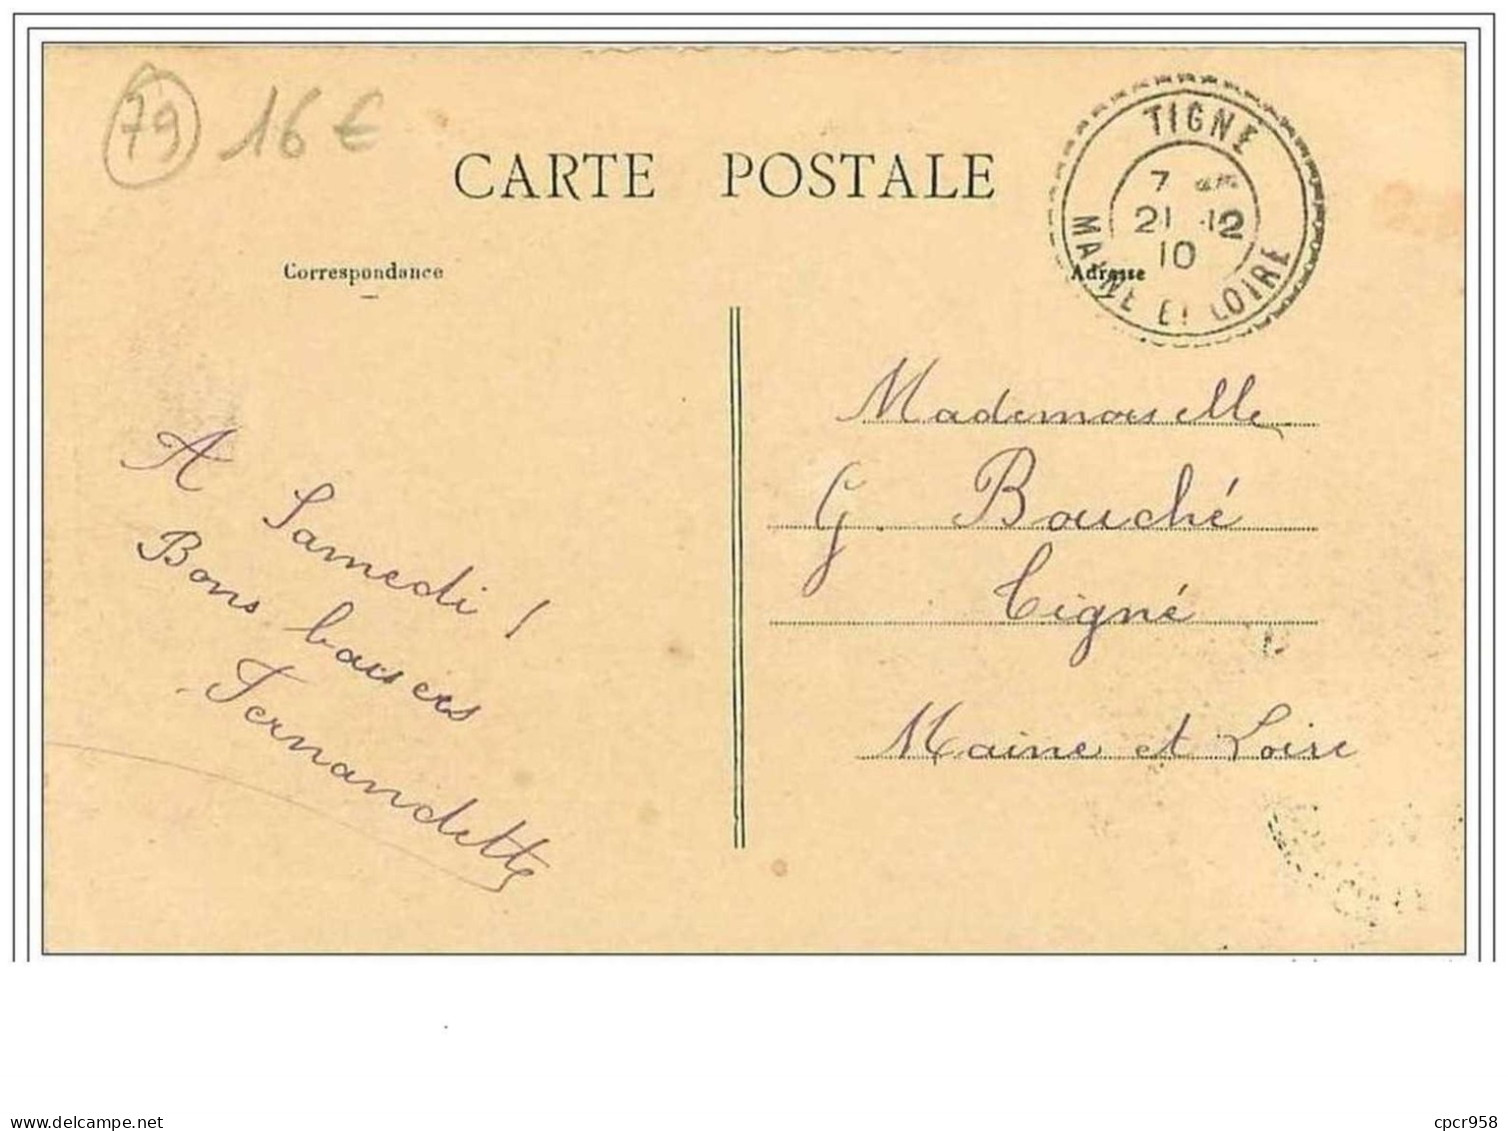 79 16 €
CARTE POSTALE
TIGNÉ
7
21 12
10
MAINE ET LOIRE
Correspondance
Adresse
Mademoiselle
G. Bouché
Tigné
Maine et Loire
A Samedi !
Bons baisers
Fernandette
cpcr958